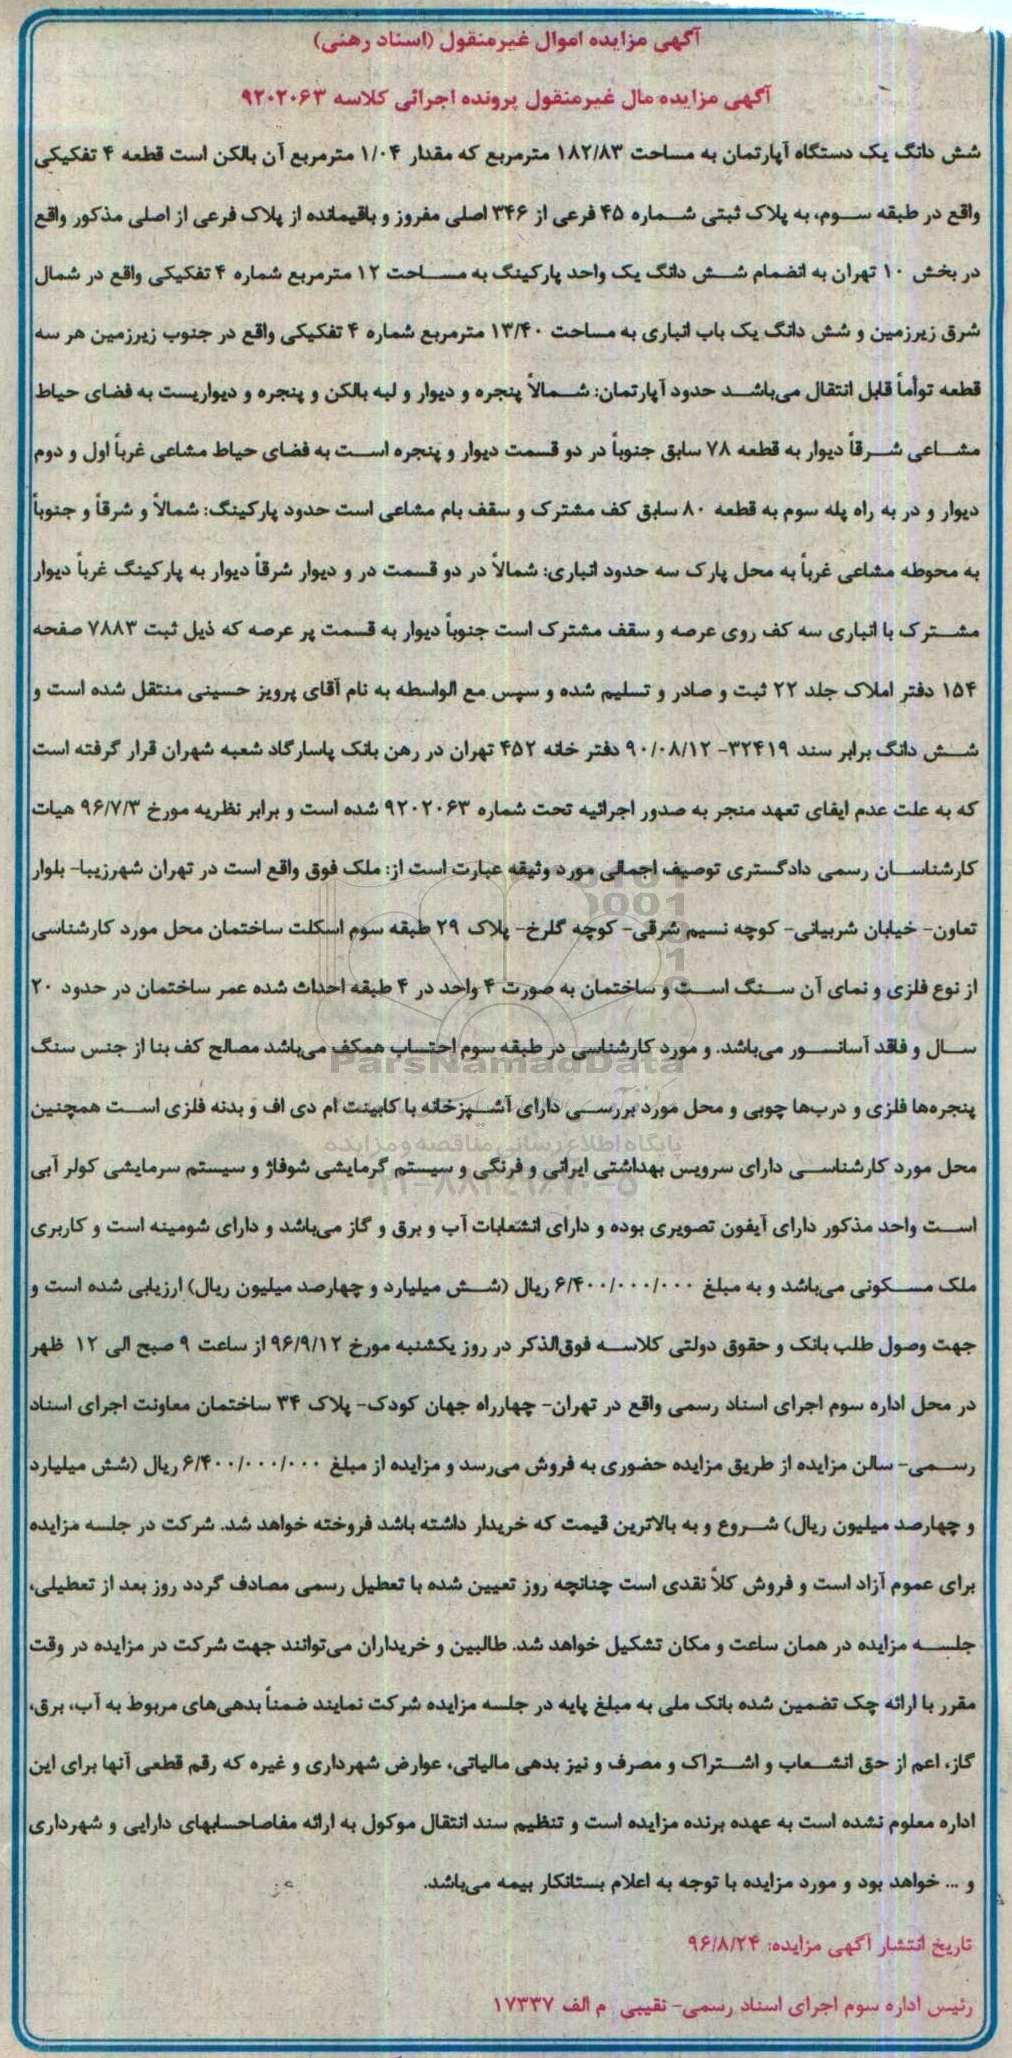 آگهی مزایده اموال غیرمنقول (اسناد رهنی)
آگهی مزایده مال غیرمنقول پرونده اجرائی کلاسه ۹۲۰۲۰۶۳
شش دانگ یک دستگاه آپارتمان به مساحت ۱۸۲/۸۳ مترمربع که مقدار ۱/۰۴ مترمربع آن بالکن است قطعه ۴ تفکیکی
واقع در طبقه سوم، به پلاک ثبتی شماره ۴۵ فرعی از ۳۴۶ اصلی مفروز و باقیمانده از پلاک فرعی از اصلی مذکور واقع
در بخش ۱۰ تهران به انضمام شش دانگ یک واحد پارکینگ به مساحت ۱۲ مترمربع شماره ۴ تفکیکی واقع در شمال
شرق زیرزمین و شش دانگ یک باب انباری به مساحت ۱۳/۴۰ مترمربع شماره ۴ تفکیکی واقع در جنوب زیرزمین هر سه
قطعه توأماً قابل انتقال می‌باشد حدود آپارتمان: شمالاً پنجره و دیوار و لبه بالکن و پنجره و دیواریست به فضای حیاط
مشاعی شرقاً دیوار به قطعه ۷۸ سابق جنوباً در دو قسمت دیوار و پنجره است به فضای حیاط مشاعی غرباً اول و دوم
دیوار و در به راه پله سوم به قطعه ۸۰ سابق کف مشترک و سقف بام مشاعی است حدود پارکینگ: شمالاً و شرقاً و جنوباً
به محوطه مشاعی غرباً به محل پارک سه حدود انباری: شمالاً در دو قسمت در و دیوار شرقاً دیوار به پارکینگ غرباً دیوار
مشترک با انباری سه کف روی عرصه و سقف مشترک است جنوباً دیوار به قسمت پر عرصه که ذیل ثبت ۷۸۸۳ صفحه
۱۵۴ دفتر املاک جلد ۲۲ ثبت و صادر و تسلیم شده و سپس مع الواسطه به نام آقای پرویز حسینی منتقل شده است و
شش دانگ برابر سند ۳۲۴۱۹- ۹۰/۰۸/۱۲ دفتر خانه ۴۵۲ تهران در رهن بانک پاسارگاد شعبه شهران قرار گرفته است
که به علت عدم ایفای تعهد منجر به صدور اجرائیه تحت شماره ۹۲۰۲۰۶۳ شده است و برابر نظریه مورخ ۹۶/۷/۳ هیات
کارشناسان رسمی دادگستری توصیف اجمالی مورد وثیقه عبارت است از: ملک فوق واقع است در تهران شهرزیبا- بلوار
تعاون- خیابان شربیانی- کوچه نسیم شرقی- کوچه گلرخ- پلاک ۲۹ طبقه سوم اسکلت ساختمان محل مورد کارشناسی
از نوع فلزی و نمای آن سنگ است و ساختمان به صورت ۴ واحد در ۴ طبقه احداث شده عمر ساختمان در حدود ۲۰
سال و فاقد آسانسور می‌باشد. و مورد کارشناسی در طبقه سوم احتساب همکف می‌باشد مصالح کف بنا از جنس سنگ
پنجره‌ها فلزی و درب‌ها چوبی و محل مورد بررسی دارای آشپزخانه با کابینت ام دی اف و بدنه فلزی است همچنین
محل مورد کارشناسی دارای سرویس بهداشتی ایرانی و فرنگی و سیستم گرمایشی شوفاژ و سیستم سرمایشی کولر آبی
است واحد مذکور دارای آیفون تصویری بوده و دارای انشعابات آب و برق و گاز می‌باشد و دارای شومینه است و کاربری
ملک مسکونی می‌باشد و به مبلغ ۶/۴۰۰/۰۰۰/۰۰۰ ریال (شش میلیارد و چهارصد میلیون ریال) ارزیابی شده است و
جهت وصول طلب بانک و حقوق دولتی کلاسه فوق‌الذکر در روز یکشنبه مورخ ۹۶/۹/۱۲ از ساعت ۹ صبح الی ۱۲ ظهر
در محل اداره سوم اجرای اسناد رسمی واقع در تهران- چهارراه جهان کودک- پلاک ۳۴ ساختمان معاونت اجرای اسناد
رسمی- سالن مزایده از طریق مزایده حضوری به فروش می‌رسد و مزایده از مبلغ ۶/۴۰۰/۰۰۰/۰۰۰ ریال (شش میلیارد
و چهارصد میلیون ریال) شروع و به بالاترین قیمت که خریدار داشته باشد فروخته خواهد شد. شرکت در جلسه مزایده
برای عموم آزاد است و فروش کلاً نقدی است چنانچه روز تعیین شده با تعطیل رسمی مصادف گردد روز بعد از تعطیلی،
جلسه مزایده در همان ساعت و مکان تشکیل خواهد شد. طالبین و خریداران می‌توانند جهت شرکت در مزایده در وقت
مقرر با ارائه چک تضمین شده بانک ملی به مبلغ پایه در جلسه مزایده شرکت نمایند ضمناً بدهی‌های مربوط به آب، برق،
گاز، اعم از حق انشعاب و اشتراک و مصرف و نیز بدهی مالیاتی، عوارض شهرداری و غیره که رقم قطعی آنها برای این
اداره معلوم نشده است به عهده برنده مزایده است و تنظیم سند انتقال موکول به ارائه مفاصاحسابهای دارایی و شهرداری
و ... خواهد بود و مورد مزایده با توجه به اعلام بستانکار بیمه می‌باشد.
تاریخ انتشار آگهی مزایده: ۹۶/۸/۲۴
رئیس اداره سوم اجرای اسناد رسمی- نقیبی م الف ۱۷۳۳۷
ParsNamadData
پایگاه اطلاع رسانی مناقصه و مزایده